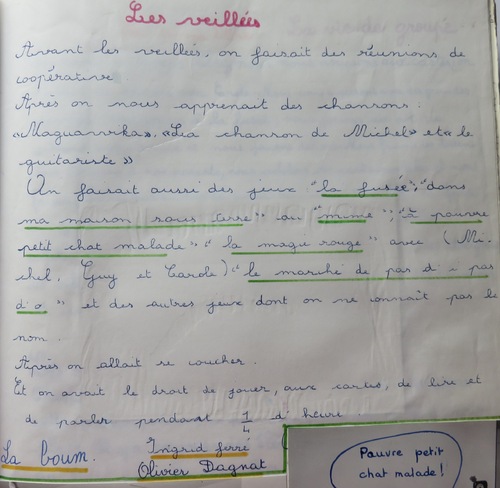 Les veillées
Avant les veillées, on faisait des réunions de
coopérative.
Après on nous apprenait des chansons :
«Maguanrika», «La chanson de Michel» et « le
guitariste »
On faisait aussi des jeux "la fusée"; "dans
ma maison sous terre" au "mime"; "à pauvre
petit chat malade" "la magie rouge" avec (Mi-
chel, Guy et Carole) "le marché de pas d'i pas
d'o" et des autres jeux dont on ne connaît pas le
nom.
Après on allait se coucher.
Et on avait le droit de jouer, aux cartes, de lire et
de parler pendant 1/4 d'heure.
La boum.
Ingrid Serré
Olivier Dagnat
Pauvre petit
chat malade !